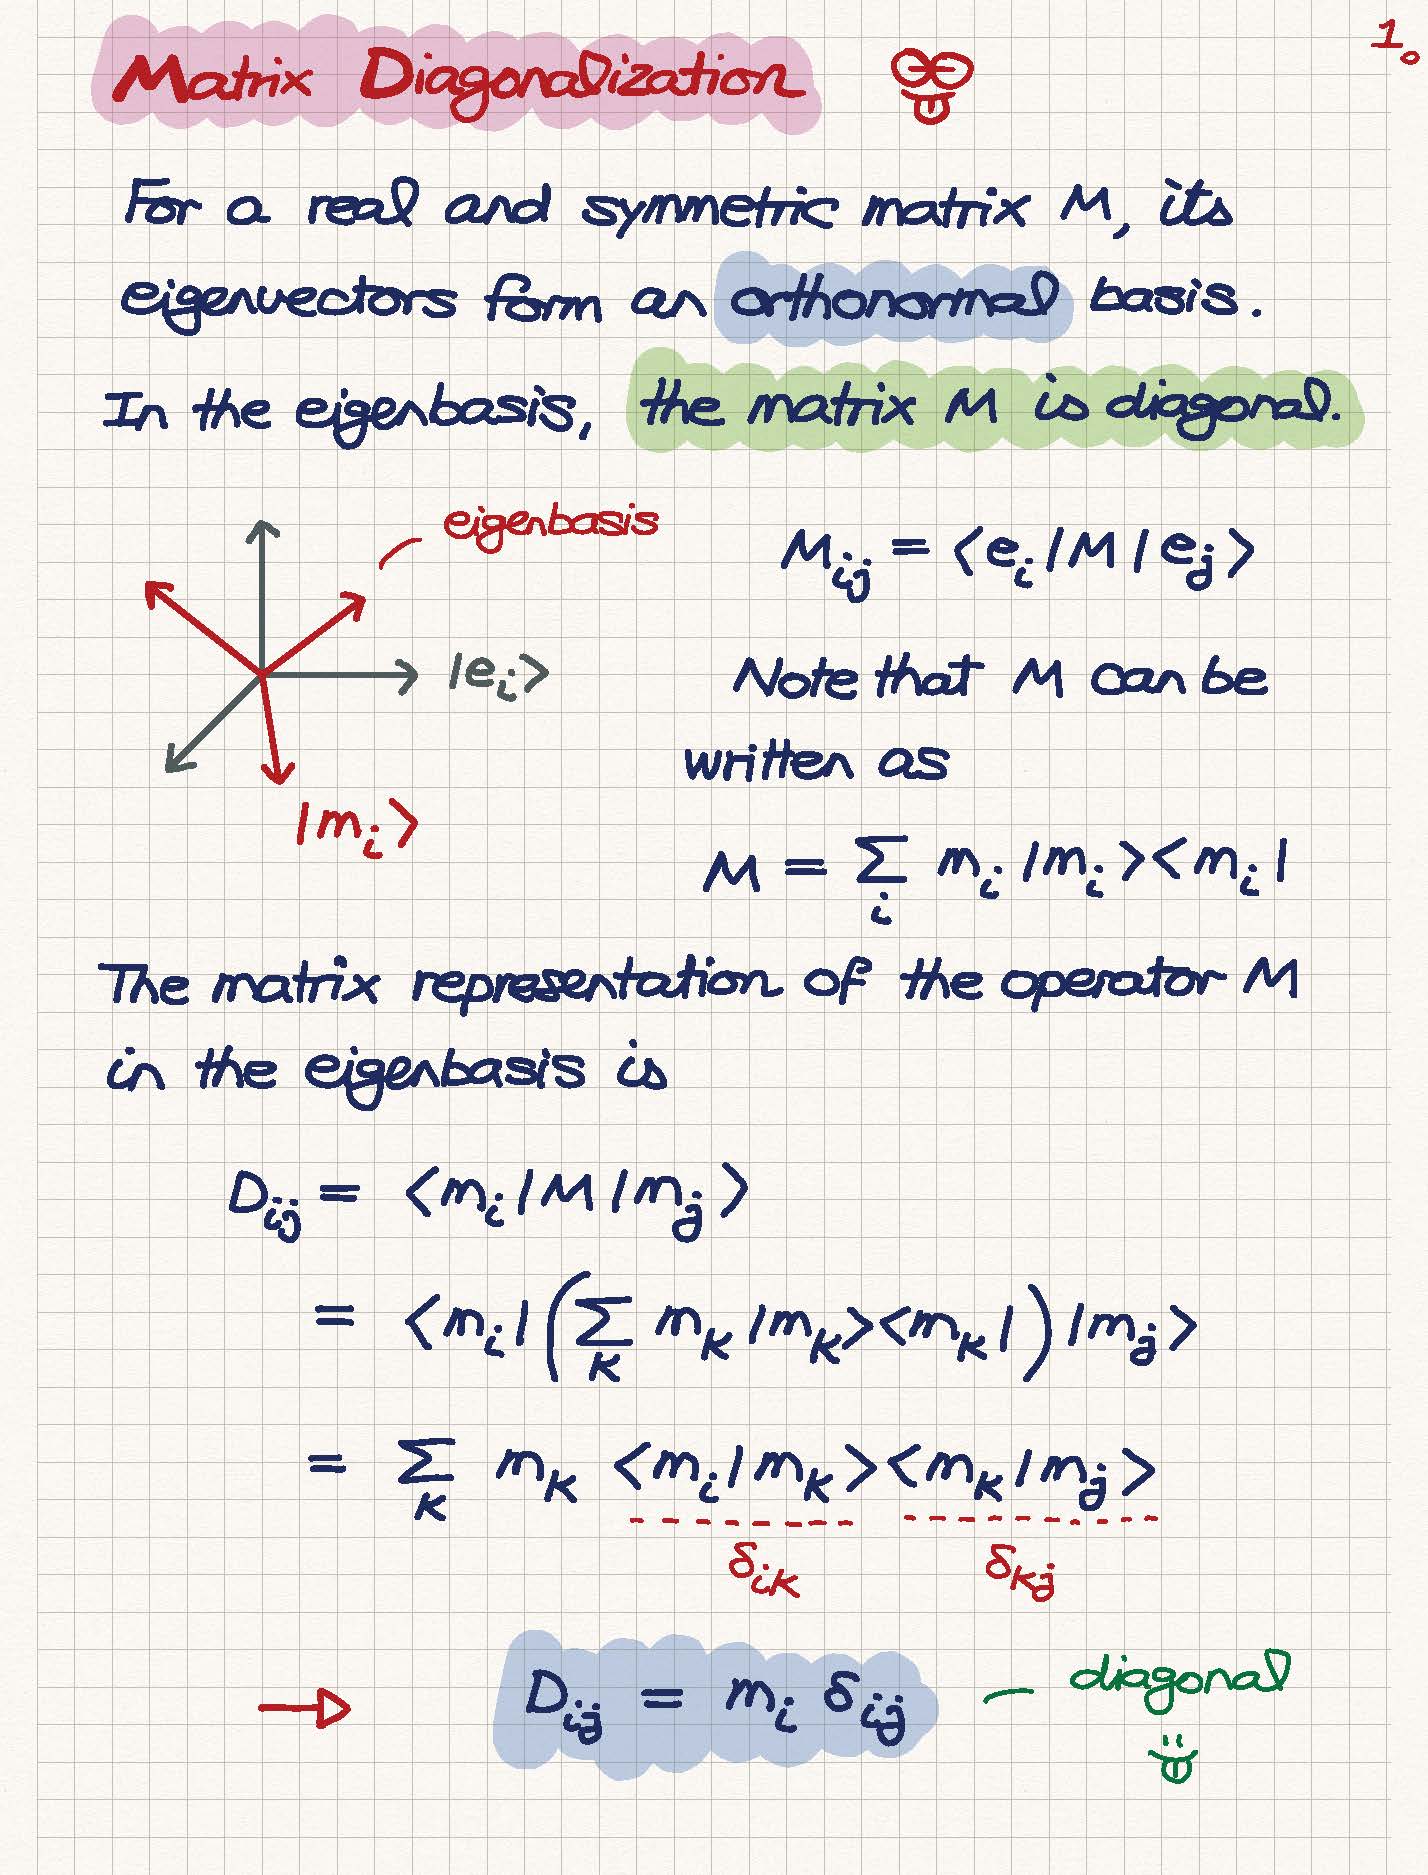 1.
Matrix Diagonalization
For a real and symmetric matrix M, its
eigenvectors form an orthonormal basis.
In the eigenbasis, the matrix M is diagonal.
eigenbasis
|eᵢ⟩
|mᵢ⟩
Mᵢⱼ = ⟨eᵢ|M|eⱼ⟩
Note that M can be
written as
M = Σᵢ mᵢ |mᵢ⟩⟨mᵢ|
The matrix representation of the operator M
in the eigenbasis is
Dᵢⱼ = ⟨mᵢ|M|mⱼ⟩
= ⟨mᵢ|(Σₖ mₖ |mₖ⟩⟨mₖ|)|mⱼ⟩
= Σₖ mₖ ⟨mᵢ|mₖ⟩⟨mₖ|mⱼ⟩
δᵢₖ δₖⱼ
→ Dᵢⱼ = mᵢ δᵢⱼ — diagonal